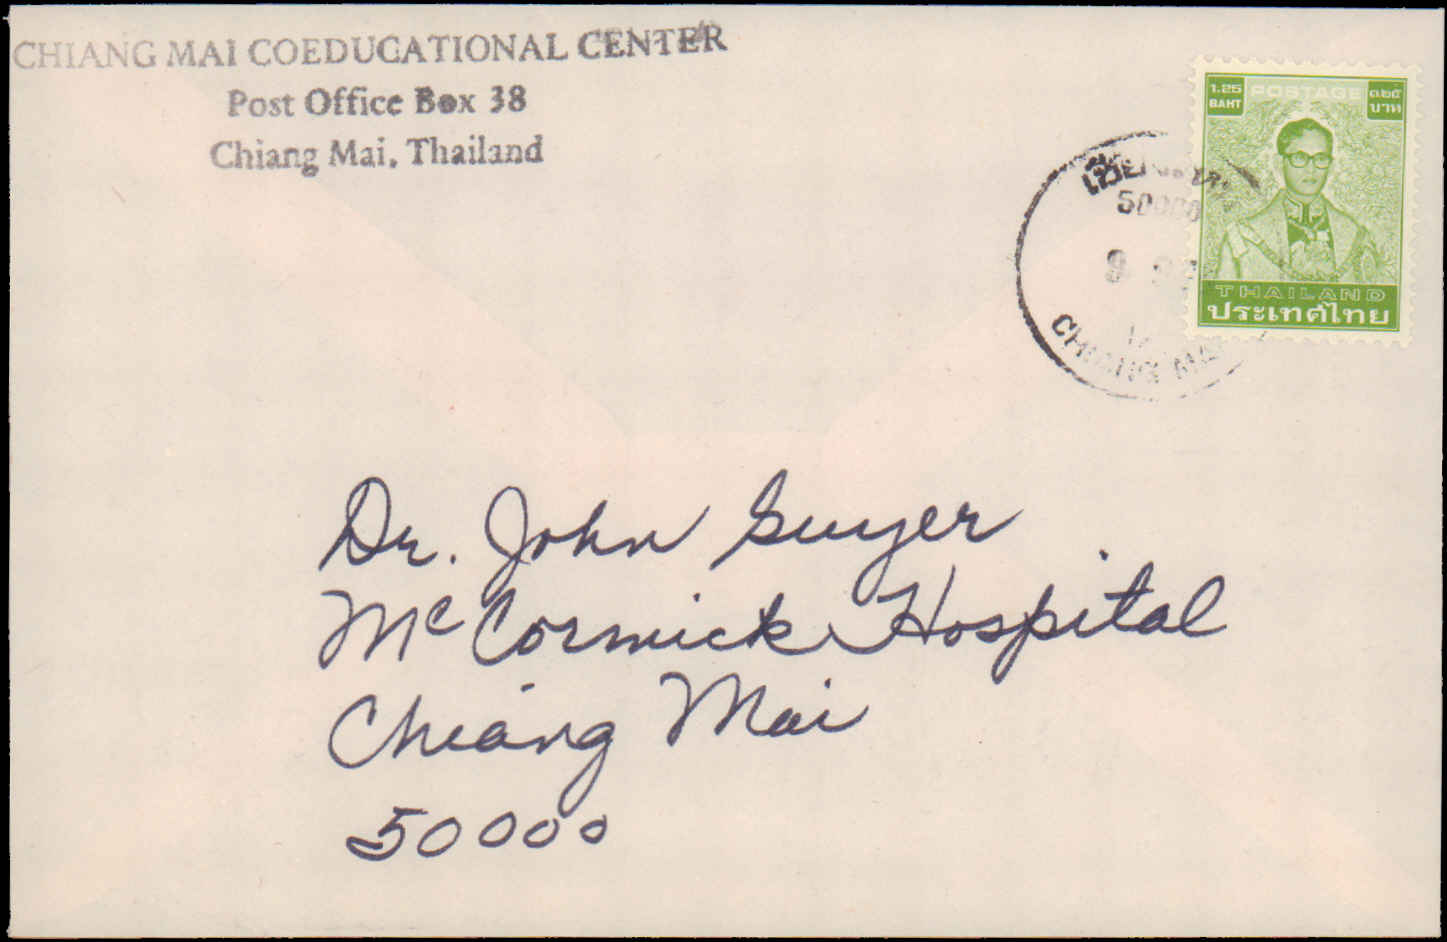 CHIANG MAI COEDUCATIONAL CENTER
Post Office Box 38
Chiang Mai, Thailand
1.25 BAHT POSTAGE ๑.๒๕ บาท
THAILAND
ประเทศไทย
50000
9
CHIANG MAI
Dr. John Guyer
McCormick Hospital
Chiang Mai
50000